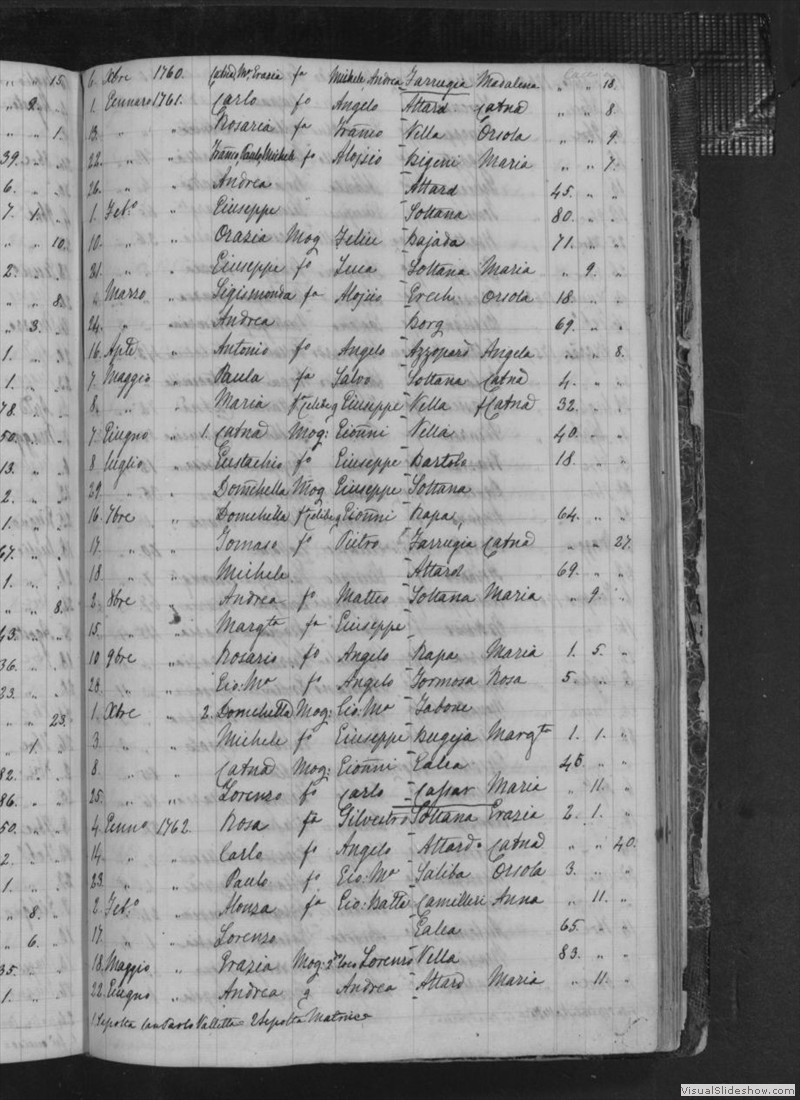 " " 15. 6. Xbre 1760. Catnd Mr. Grazia fa Michele Andrea Farrugia Madalena " " 18.
" 2. " 1. Gennaro 1761. Carlo fo Angelo Attard Catnd " " 8.
" " 1. 13. " " Rosaria fa Franco Vella Orsola " " 9.
39. " " 22. " " Franco Paulo Michele fo Aloisio Bigeni Maria " " 7.
6. " " 26. " " Andrea Attard 45. " "
7. 1. " 1. Feb.o " Giuseppe Soltana 80. " "
" " 10. 10. " " Orazia Mog Felice Bajada 71. " "
2. " " 21. " " Giuseppe fo Luca Soltana Maria " 9. "
" " 8. Marzo " Sigismonda fa Aloisio Grech Orsola 18. " "
" 3. " 24. " " Andrea Borg 69. " "
1. " " 16. Aple " Antonio fo Angelo Azzopard Angela " " 8.
1. " " 7. Maggio " Paula fa Salvo Soltana Catnd 4. " "
78 " " 8. " " Maria fa celibe q Giuseppe Vella q Catnd 32. " "
50. " " 7. Giugno " 1. Catnd Mog: Gionni Vella 40. " "
13. " " 8. Luglio " Eustachio fo Giuseppe Bartolo 18. " "
2. " " 29. " " Domchella Mog Giuseppe Soltana
1. " " 16. 7bre " Domchella fa celibe q Gionni Rapa 64. " "
67. " " 17. " " Tomaso fo Pietro Farrugia Catnd " " 27.
1. " " 18. " " Michele Attard 69. " "
" " 8. 2. 8bre " Andrea fo Matteo Soltana Maria " 9. "
43. " " 15. " " Margta fa Giuseppe
36. " " 10 9bre " Rosario fo Angelo Rapa Maria 1. 5. "
23. " " 28. " " Gio: Ma fo Angelo Formosa Rosa 5. " "
" " 23. 1. Xbre " 2. Domchella Mog: Gio: Ma Zabone
" 1. " 3. " " Michele fo Giuseppe Bugeja Margta 1. 1. "
82. " " 8. " " Catnd Mog: Gionni Galea 45. " "
86. " " 25. " " Lorenzo fo Carlo Cassar Maria " 11. "
50. " " 4. Genno 1762. Rosa fa Silvestro Soltana Grazia 2. 1. "
2. " " 14. " " Carlo fo Angelo Attard Catnd " " 40.
1. " " 23. " " Paulo fo Gio: Ma Saliba Orsola 3. " "
" 8. " 2. Feb.o " Alonza fa Gio: Batta Camilleri Anna " 11. "
" 6. " 17. " " Lorenzo Galea 65. " "
35. " " 18. Maggio " Grazia Mog: Lorenzo Vella 83. " "
1. " " 22. Giugno " Andrea q Andrea Attard Maria " 11. "
1 Sepolta San Paolo Valletta = 2 Sepolta Matrice
VisualSlideshow.com